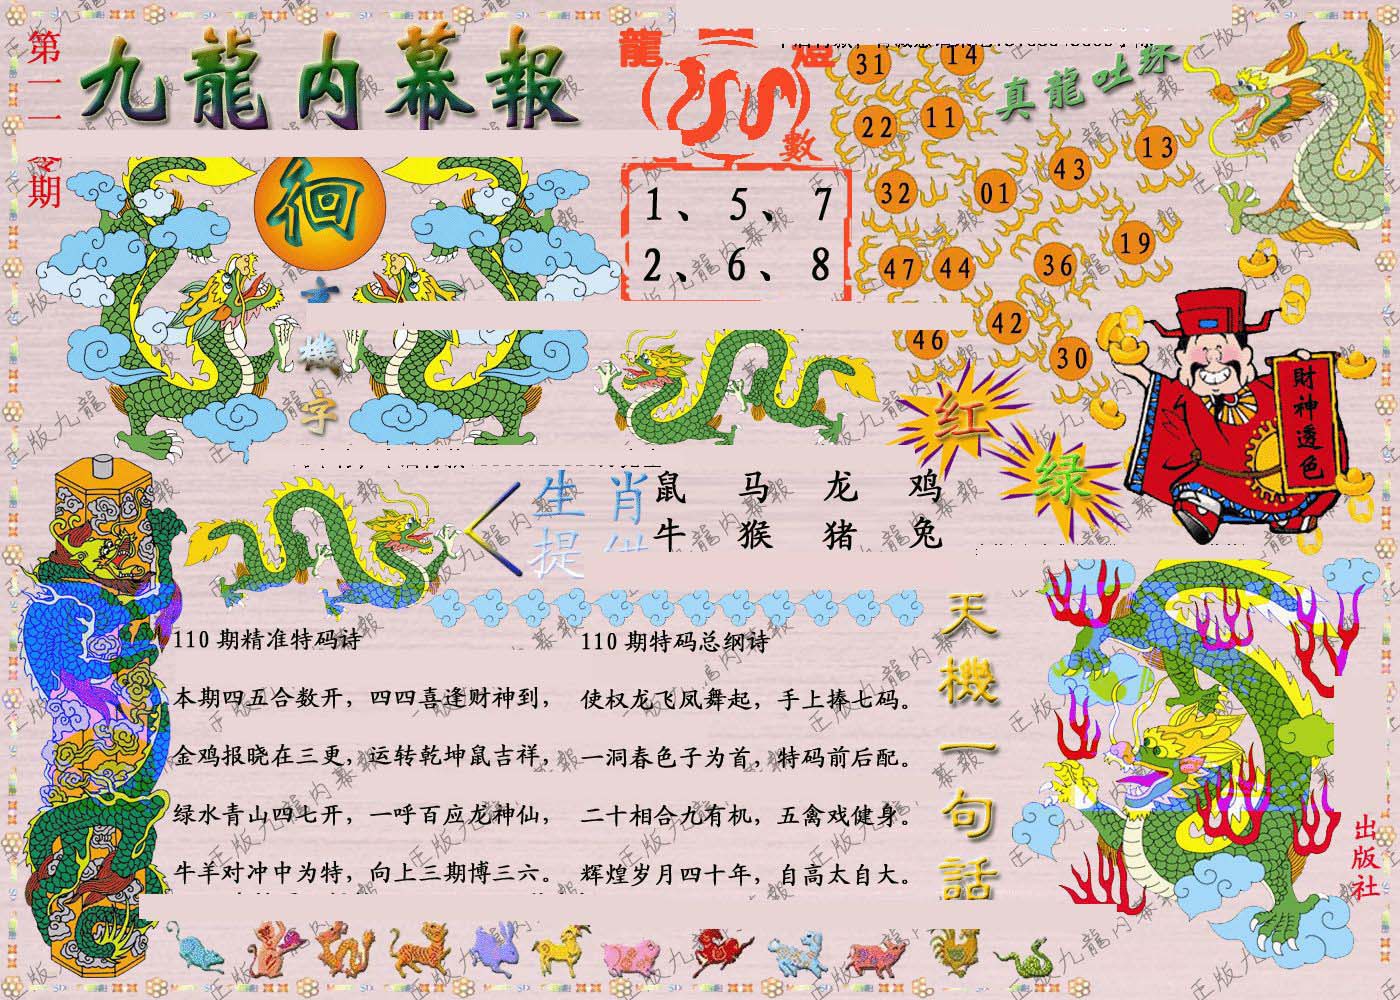 第一一零期
九龍內幕報
龍 燈
數
1、5、7
2、6、8
真龍吐珠
31 14
22 11
13
43
32 01
19
47 44 36
42
46
30
徊
玄機字
红
绿
財神透色
生肖
提供
鼠 马 龙 鸡
牛 猴 猪 兔
110期精准特码诗
本期四五合数开，四四喜逢财神到，
金鸡报晓在三更，运转乾坤鼠吉祥，
绿水青山四七开，一呼百应龙神仙，
牛羊对冲中为特，向上三期博三六。
110期特码总纲诗
使权龙飞凤舞起，手上捧七码。
一洞春色子为首，特码前后配。
二十相合九有机，五禽戏健身。
辉煌岁月四十年，自高太自大。
天機一句話
出版社
正版九龍內幕報